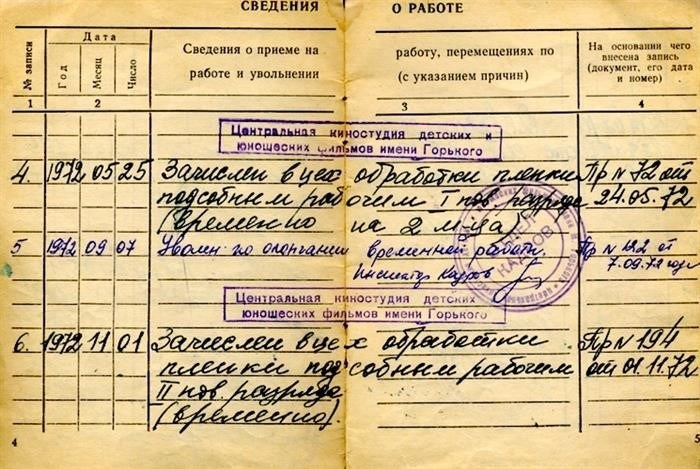 СВЕДЕНИЯ О РАБОТЕ
№ записи
Дата
Год
Месяц
Число
Сведения о приеме на работу, перемещениях по
работе и увольнении (с указанием причин)
На основании чего
внесена запись
(документ, его дата
и номер)
1 2 3 4
Центральная киностудия детских и
юношеских фильмов имени Горького
4. 1972 05 25 Зачислен в цех обработки пленки Пр N 72 от
подсобным рабочим I пов. разряда 24.05.72
(временно на 2 м-ца)
5 1972 09 07 Уволен по окончании временной работы. Пр N 122 от
Инспектор кадров 7.09.72 года
ОТДЕЛ
КАДРОВ
Центральная киностудия детских и
юношеских фильмов имени Горького
6. 1972 11 01 Зачислен в цех обработки Пр N 194
пленки подсобным рабочим от 01.11.72
II пов. разряда
(временно).
4 5